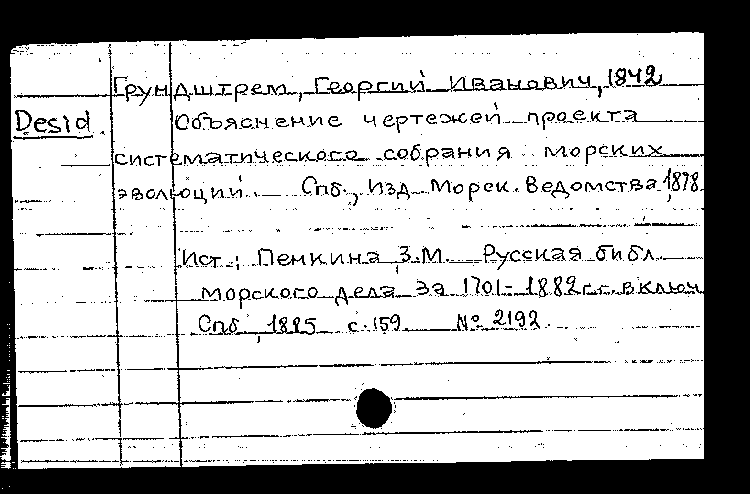 Грундштрем, Георгий Иванович, 1842
Desid. Объяснение чертежей проекта
систематического собрания морских
эволюций. Спб., Изд. Морск. Ведомства, 1878
Ист.: Пемкина, З.М. Русская библ.
морского дела за 1701-1882 г.г. включ.
Спб., 1885 с. 159. № 2192.